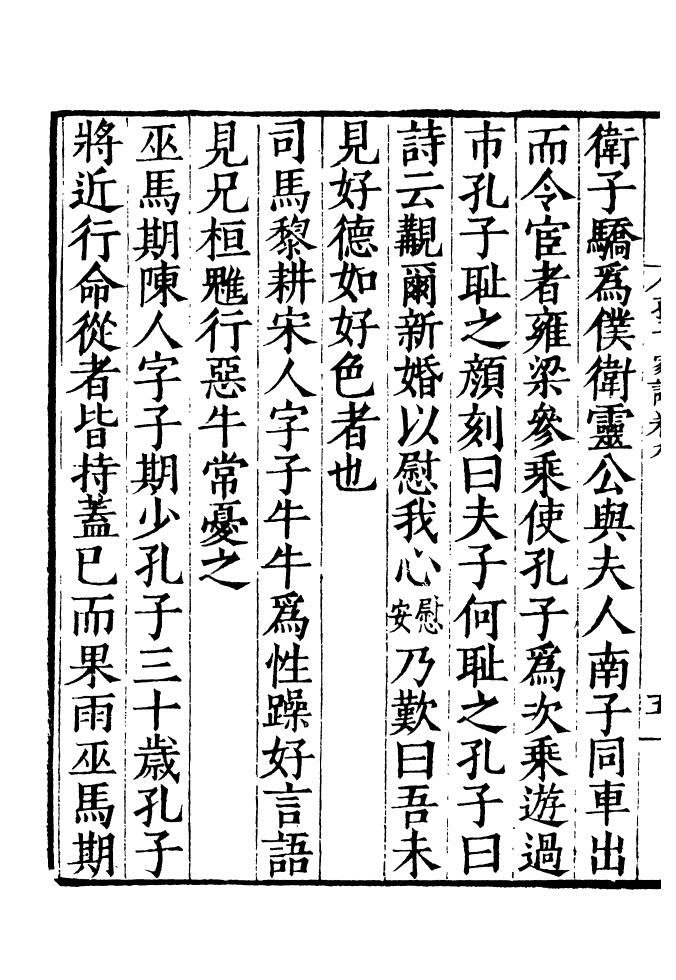 衛子驕爲僕衛靈公與夫人南子同車出
而令宦者雍梁參乘使孔子爲次乘遊過
市孔子耻之顔刻曰夫子何耻之孔子曰
詩云觏爾新婚以慰我心慰安乃歎曰吾未
見好德如好色者也
司馬黎耕宋人字子牛牛爲性躁好言語
見兄桓魋行惡牛常憂之
巫馬期陳人字子期少孔子三十歲孔子
將近行命從者皆持蓋已而果雨巫馬期